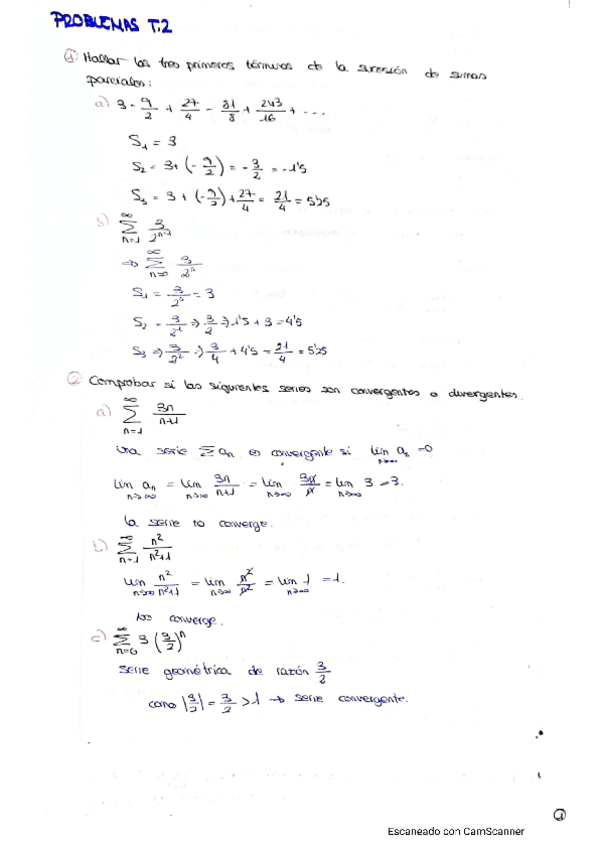 PROBLEMAS T.2
① Hallar los tres primeros términos de la sucesión de sumas
parciales:
a) 3 - 9/2 + 27/4 - 81/8 + 243/16 + ...
S₁ = 3
S₂ = 3 + (-9/2) = -3/2 = -1'5
S₃ = 3 + (-9/2) + 27/4 = 21/4 = 5'25
b) ∞ Σ n=1 3/2ⁿ⁻¹
⇒ ∞ Σ n=0 3/2ⁿ
S₁ = 3/2⁰ = 3
S₂ = 3/2¹ ⇒ 3/2 ⇒ 1'5 + 3 = 4'5
S₃ ⇒ 3/2² ⇒ 3/4 + 4'5 = 21/4 = 5'25
② Comprobar si las siguientes series son convergentes o divergentes.
a) ∞ Σ n=1 3n/n+1
Una serie Σ aₙ es convergente si lim n→∞ aₙ = 0
lim n→∞ aₙ = lim n→∞ 3n/n+1 = lim n→∞ 3n/n = lim n→∞ 3 = 3.
la serie no converge.
b) ∞ Σ n=1 n²/n²+1
lim n→∞ n²/n²+1 = lim n→∞ n²/n² = lim n→∞ 1 = 1.
No converge.
c) ∞ Σ n=0 3 (3/2)ⁿ
serie geométrica de razón 3/2
como |3/2| = 3/2 > 1 → serie convergente.
①
Escaneado con CamScanner